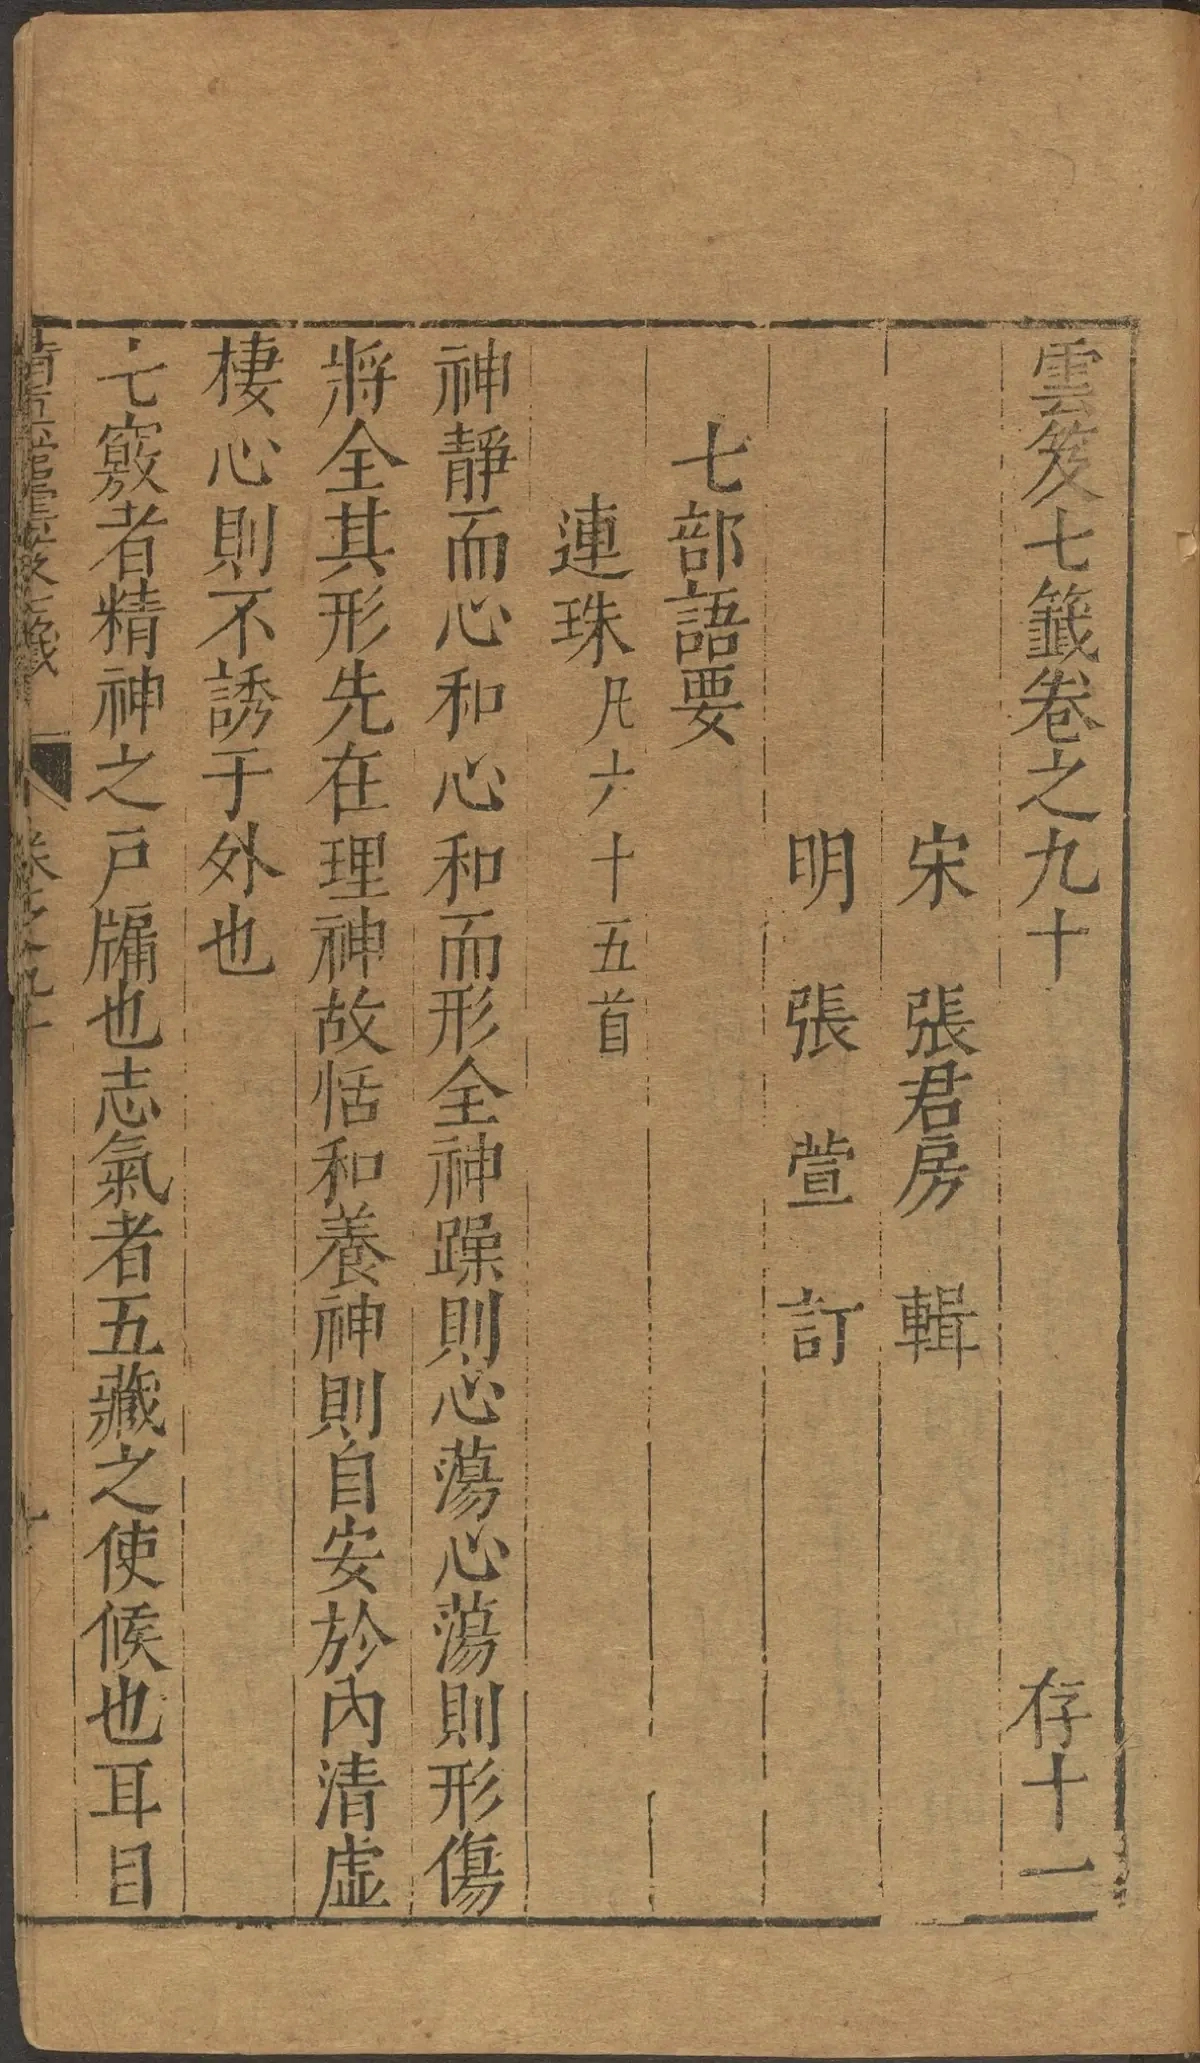 雲笈七籤卷之九十 存十一
宋 張君房 輯
明 張萱 訂
七部語要
連珠凡六十五首
神靜而心和心和而形全神躁則心蕩心蕩則形傷
將全其形先在理神故恬和養神則自安於內清虛
棲心則不誘于外也
七竅者精神之戶牖也志氣者五藏之使候也耳目
卷之九十